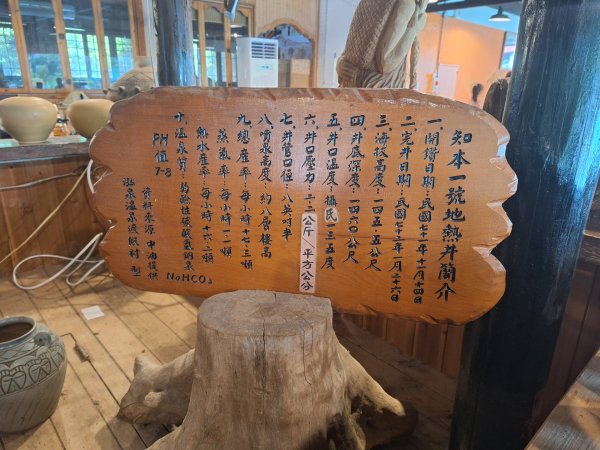 知本一號地熱井簡介
一.開鑽日期:民國七十年十一月十四日
二.完井日期:民國七十一年一月二十六日
三.海拔高度:一四五.五公尺
四.井底深度:一四六〇公尺
五.井口溫度:攝氏一三五度
六.井口壓力:二.二公斤 平方公分
七.井管口徑:八英吋半
八.噴泉高度:約八層樓高
九.總產率:每小時一七七.三頓
蒸氣率:每小時一一頓
熱水產率:每小時一六六.二頓
十.溫泉質:弱鹼性碳酸氫鈉泉
NaHCO3
PH值 7-8
資料來源 中油提供
泓泉溫泉渡假村 製